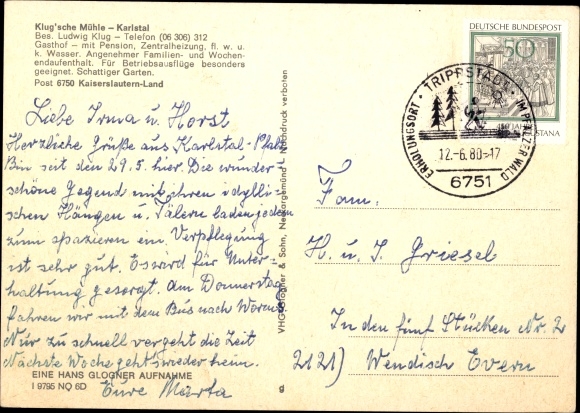 Klug'sche Mühle – Karlstal
Bes. Ludwig Klug – Telefon (06 306) 312
Gasthof – mit Pension, Zentralheizung, fl. w. u.
k. Wasser. Angenehmer Familien- und Wochen-
endaufenthalt. Für Betriebsausflüge besonders
geeignet. Schattiger Garten.
Post 6750 Kaiserslautern-Land
Liebe Irma u. Horst
Herzliche Grüße aus Karlstal-Pfalz
Bin seit den 29.5. hier. Die wunder-
schöne Gegend mit ihren idylli-
schen Hängen u. Tälern laden jeden
zum spazieren ein. Verpflegung
ist sehr gut. Es wird für Unter-
haltung gesorgt. Am Donnerstag
fahren wir mit dem Bus nach Worms
Nur zu schnell vergeht die Zeit
Nächste Woche geht's wieder heim.
Eure Marta
EINE HANS GLOGNER AUFNAHME
I 9795 NQ 6D
VHG Glogner & Sohn, Neckargemünd · Nachdruck verboten
g
DEUTSCHE BUNDESPOST
50
TRIPPSTADT · IM PFÄLZER WALD
ERHOLUNGSORT ·
12.-6.80-17
6751
Fam.
H. u. I. Griesel
In den fünf Stücken Nr. 2
2121) Wendisch Evern